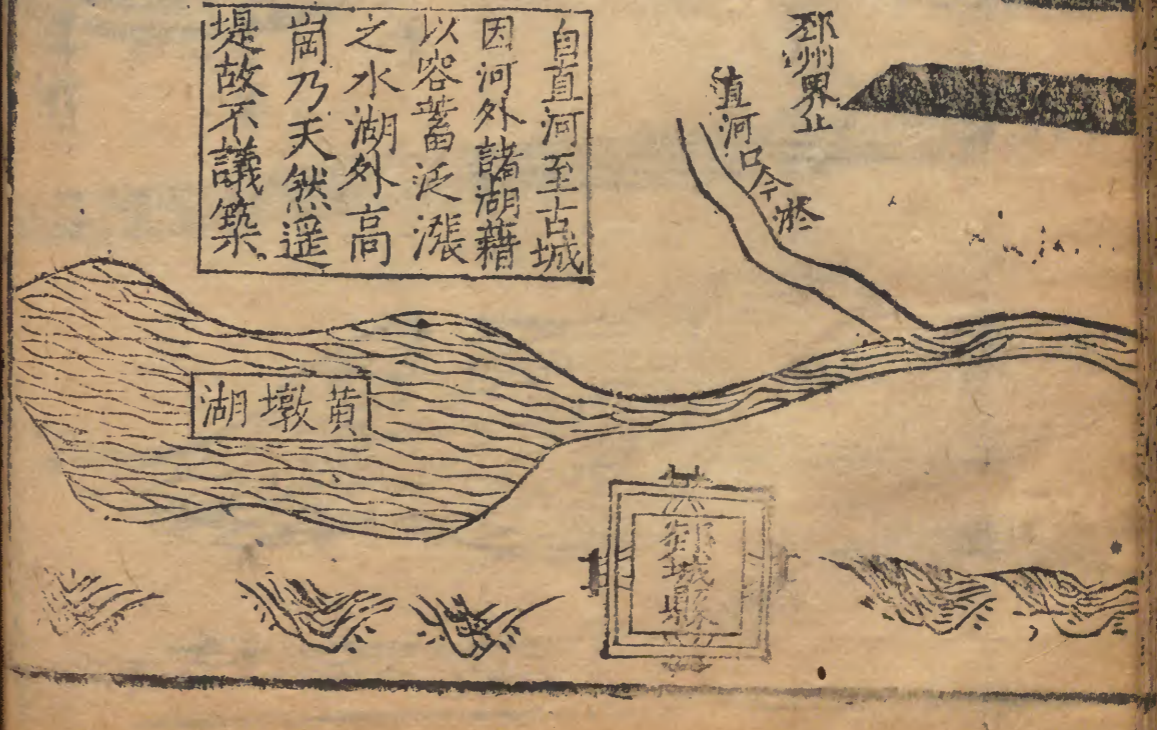 邳州界止
直河口今淤
自直河至古城
因河外諸湖藉
以容蓄泛漲
之水湖外高
崗乃天然遥
堤故不議築
黄墩湖
郯城縣